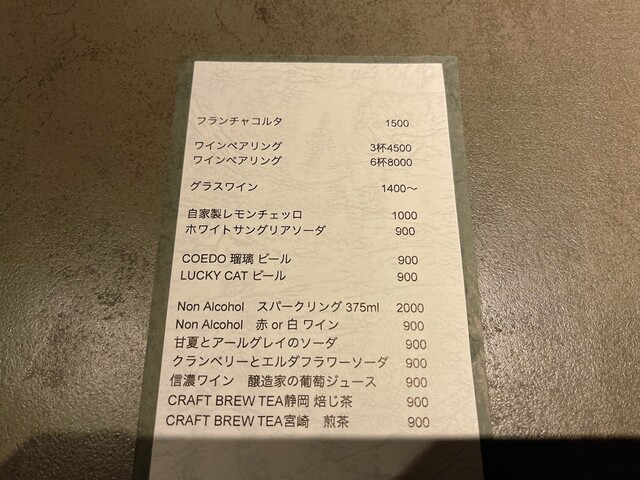 フランチャコルタ 1500
ワインペアリング 3杯4500
ワインペアリング 6杯8000
グラスワイン 1400〜
自家製レモンチェッロ 1000
ホワイトサングリアソーダ 900
COEDO 瑠璃 ビール 900
LUCKY CAT ビール 900
Non Alcohol スパークリング 375ml 2000
Non Alcohol 赤 or 白 ワイン 900
甘夏とアールグレイのソーダ 900
クランベリーとエルダフラワーソーダ 900
信濃ワイン 醸造家の葡萄ジュース 900
CRAFT BREW TEA静岡 焙じ茶 900
CRAFT BREW TEA宮崎 煎茶 900